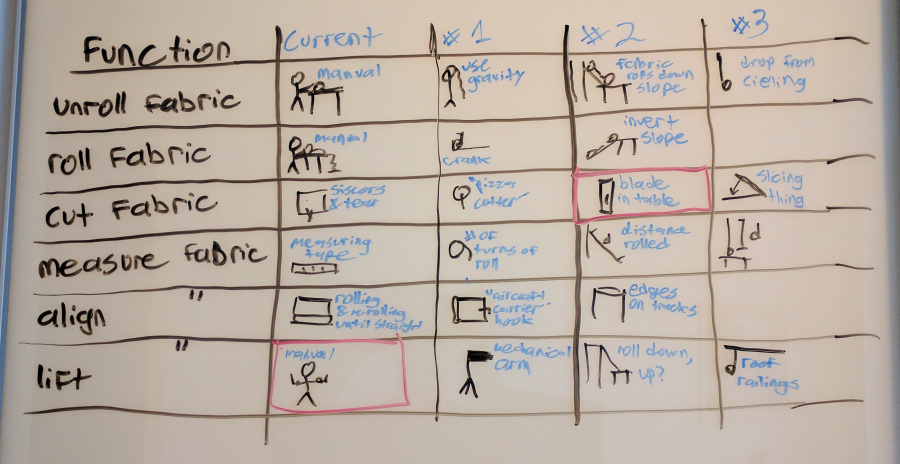 Function
Current
#1
#2
#3
unroll fabric
manual
use
gravity
fabric
rolls down
slope
drop from
cieling
roll fabric
manual
crank
invert
slope
cut fabric
siscors
& tear
"pizza
cutter"
blade
in table
slicing
thing
measure fabric
measuring
tape
# of
turns of
roll
distance
rolled
d
d
align "
rolling
& re-rolling
until straight
"aircraft
carrier"
hook
edges
on tracks
lift "
manual
mechanical
arm
roll down,
up?
roof
railings